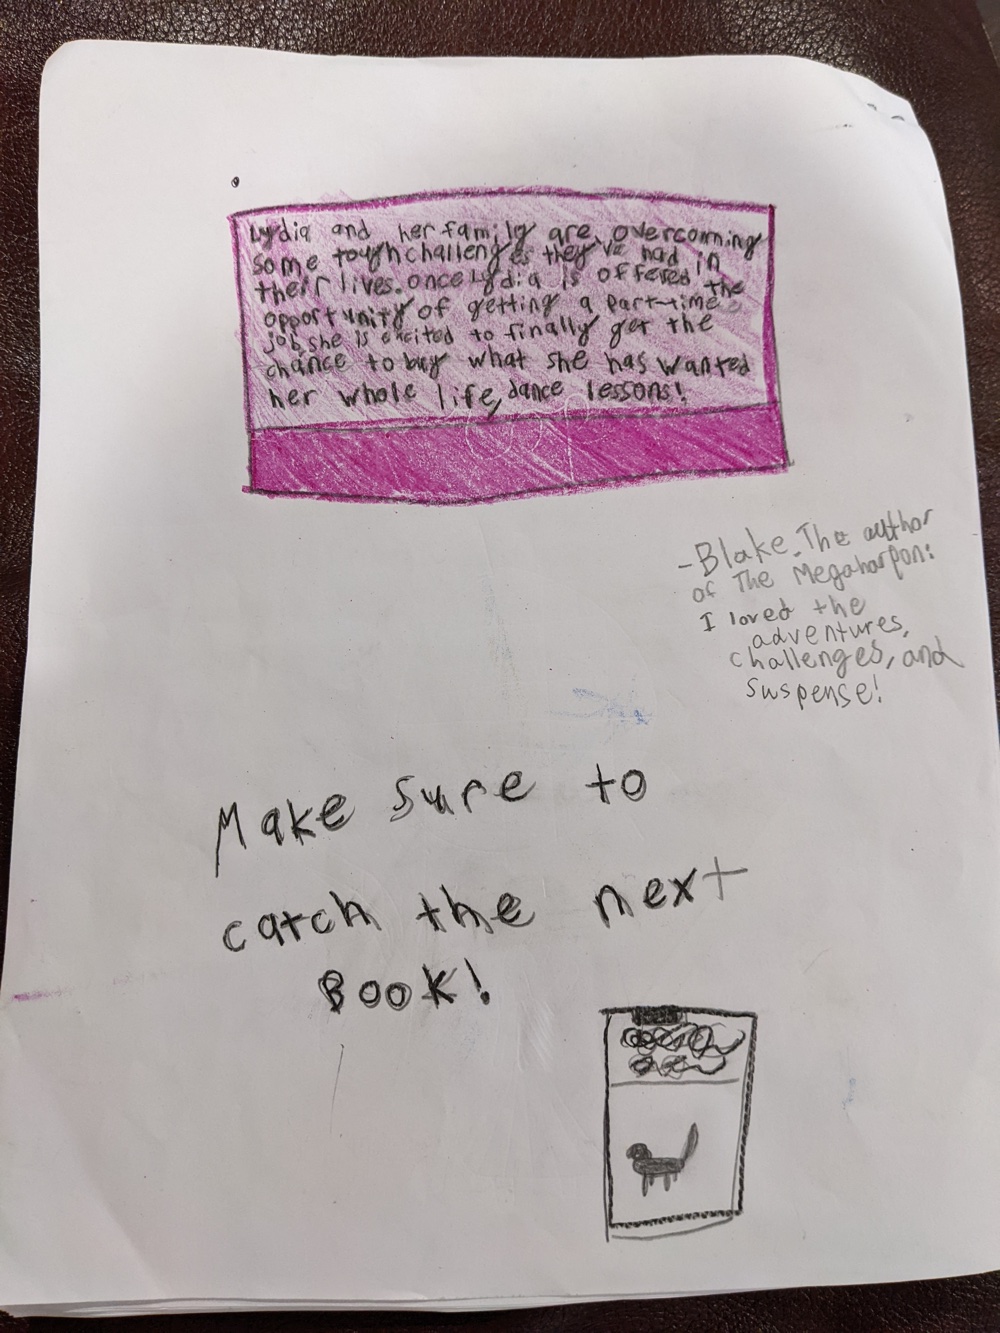 Lydia and her family are overcoming
some tough challenges they've had in
their lives. once Lydia is offered the
opportunity of getting a part-time
job, she is excited to finally get the
chance to buy what she has wanted
her whole life, dance lessons!
-Blake. The author
of The Megaharpon:
I loved the
adventures,
challenges, and
suspense!
Make sure to
catch the next
BOOK!